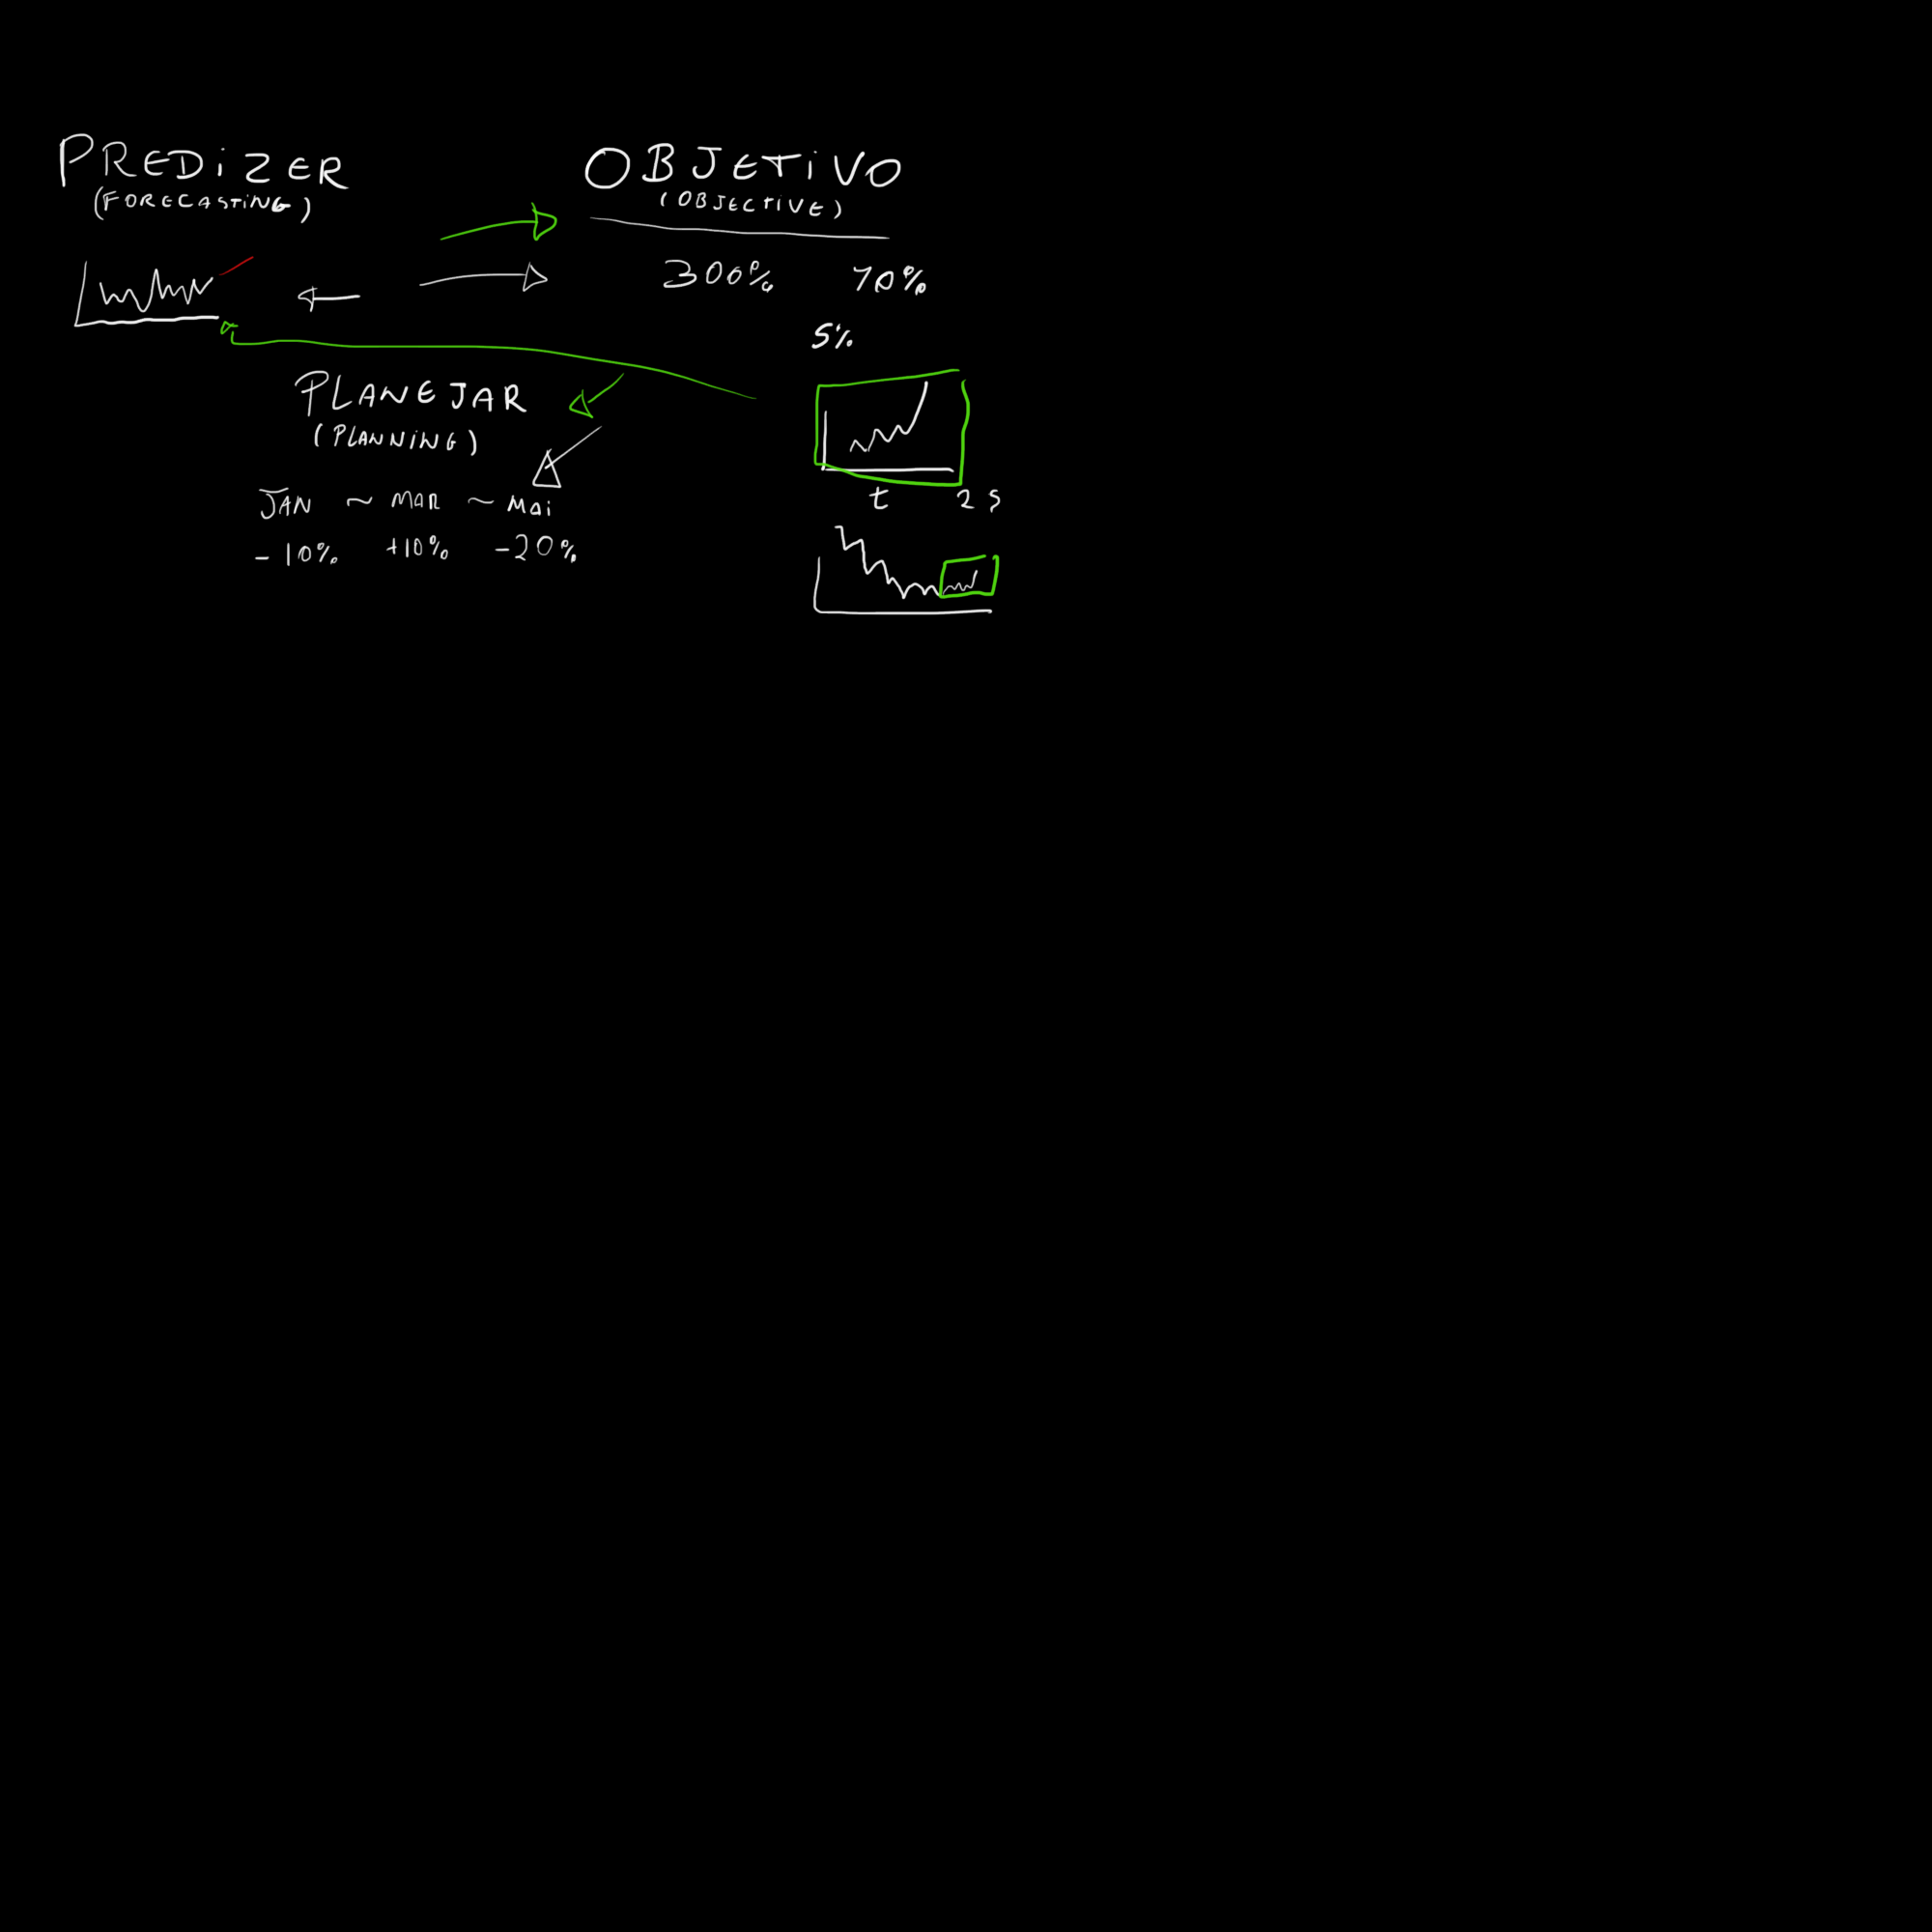 PREDIZER
(FORECASTING)
OBJETIVO
(OBJECTIVE)
300% 70%
5%
PLANEJAR
(PLANNING)
JAN ~ MAR ~ MAI
-10% +10% -20%
t 2s